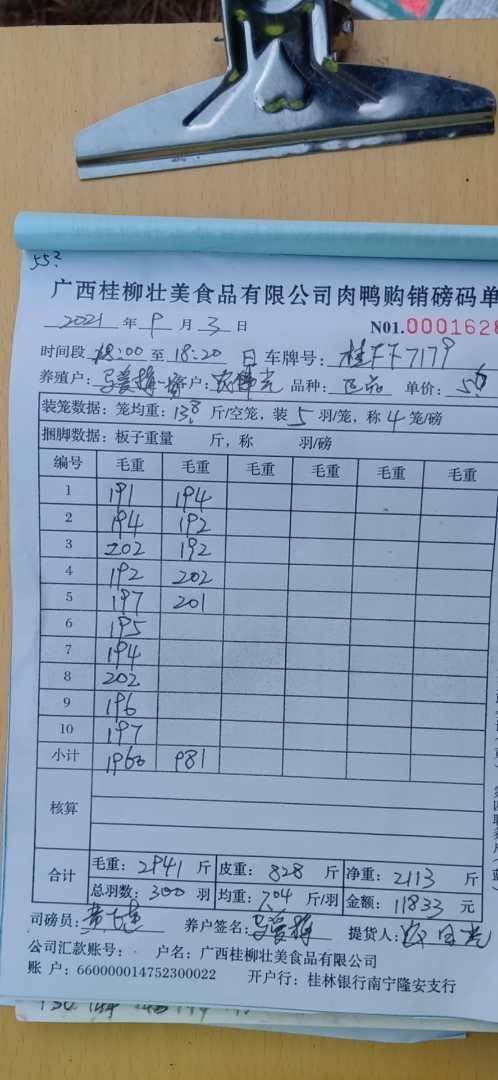 广西桂柳壮美食品有限公司肉鸭购销磅码单
2021 年 9 月 3 日 N01.0001628
时间段 18:00 至 18:20 日 车牌号: 7179
养殖户: 客户: 品种: 单价: 56
装笼数据: 笼均重: 13.8 斤/空笼, 装 5 羽/笼, 称 4 笼/磅
捆脚数据: 板子重量 斤, 称 羽/磅
编号 毛重 毛重 毛重 毛重 毛重 毛重
1 191 194
2 194 192
3 202 192
4 192 202
5 197 201
6 195
7 194
8 202
9 196
10 197
小计 1960 981
核算
合计 毛重: 2941 斤 皮重: 828 斤 净重: 2113 斤
总羽数: 300 羽 均重: 7.04 斤/羽 金额: 11833 元
司磅员: 养户签名: 提货人:
公司汇款账号: 户名: 广西桂柳壮美食品有限公司
账 户: 660000014752300022 开户行: 桂林银行南宁隆安支行